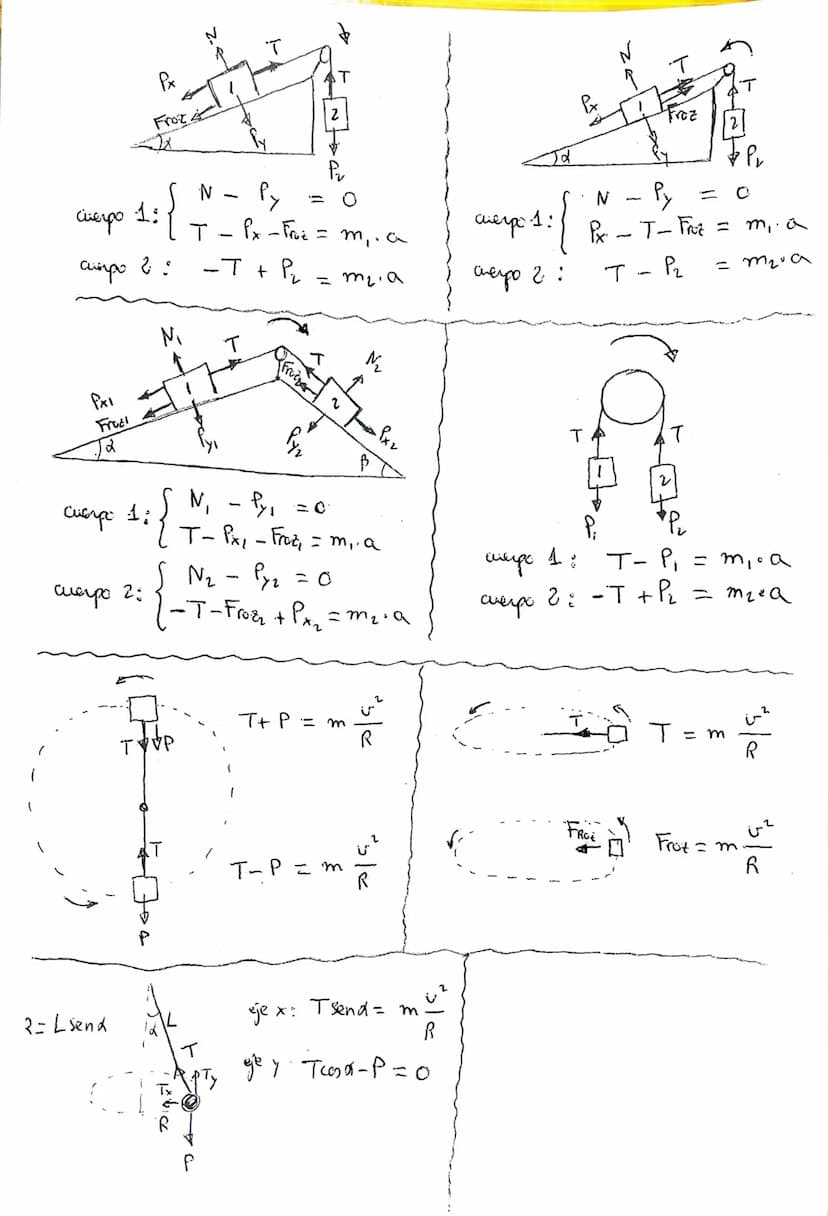 N
T
Px
1
Froz
α
Py
T
2
P2
cuerpo 1: { N - Py = 0
T - Px - Froz = m1 · a
cuerpo 2: -T + P2 = m2 · a
N
T
Px
1
Froz
α
Py
T
2
P2
cuerpo 1: { N - Py = 0
Px - T - Froz = m1 · a
cuerpo 2: T - P2 = m2 · a
N1
T
Px1
1
Froz1
α
Py1
T
Froz2
N2
2
Py2
Px2
β
cuerpo 1: { N1 - Py1 = 0
T - Px1 - Froz1 = m1 · a
cuerpo 2: { N2 - Py2 = 0
-T - Froz2 + Px2 = m2 · a
T
T
1
2
P1
P2
cuerpo 1: T - P1 = m1 · a
cuerpo 2: -T + P2 = m2 · a
T
P
T + P = m v²/R
T
P
T - P = m v²/R
T
T = m v²/R
FRoz
Froz = m v²/R
R = L senα
α
L
T
Tx
Ty
R
P
eje x: T senα = m v²/R
eje y: T cosα - P = 0